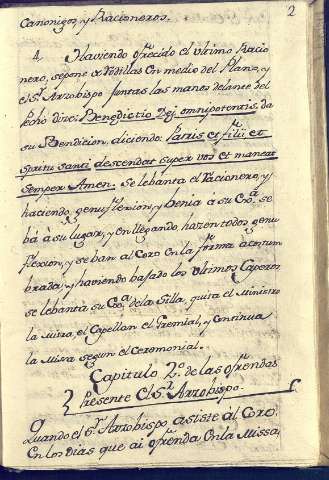 2
Canonigos, y Racioneros.
4. Haviendo ofrecido el ultimo Racio
nero, se pone de rodillas en medio del Plano, y
el Sr. Arzobispo juntas las manos delante del
pecho dice: Benedictio Dei omnipotentis, da
su Bendicion, diciendo: Patris et filii et
spiritu santi descendat super vos et maneat
semper Amen. Se lebanta el Racionero, y
haciendo genuflexion, y Benia a su Exa. se
bá à su lugar, y en llegando, hazen todos genu
flexion, y se ban al Coro en la forma acostum
brada; y haviendo bajado los ultimos Caperos
se lebanta su Exa. de la Silla, quita el Ministro
la Mitra, el Capellan el Gremial, y continua
la Missa segun el Ceremonial.
Capitulo 2º. de las ofrendas
Presente el Sr. Arzobispo.
Quando el Sr. Arzobispo asiste al Coro
en los dias que ai ofrenda en la Missa,